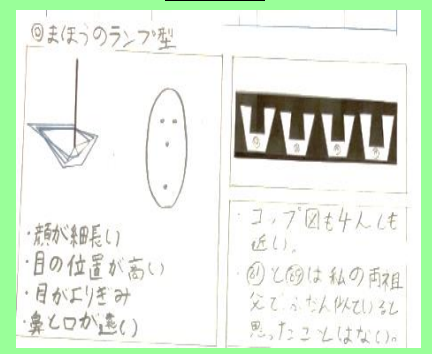 まほうのランプ型
・顔が細長い
・目の位置が高い
・目がよりぎみ
・鼻と口が遠い
・コップ図も4人とも
近い。
・と は私の両祖
父で、ふだん似ていると
思ったことはない。